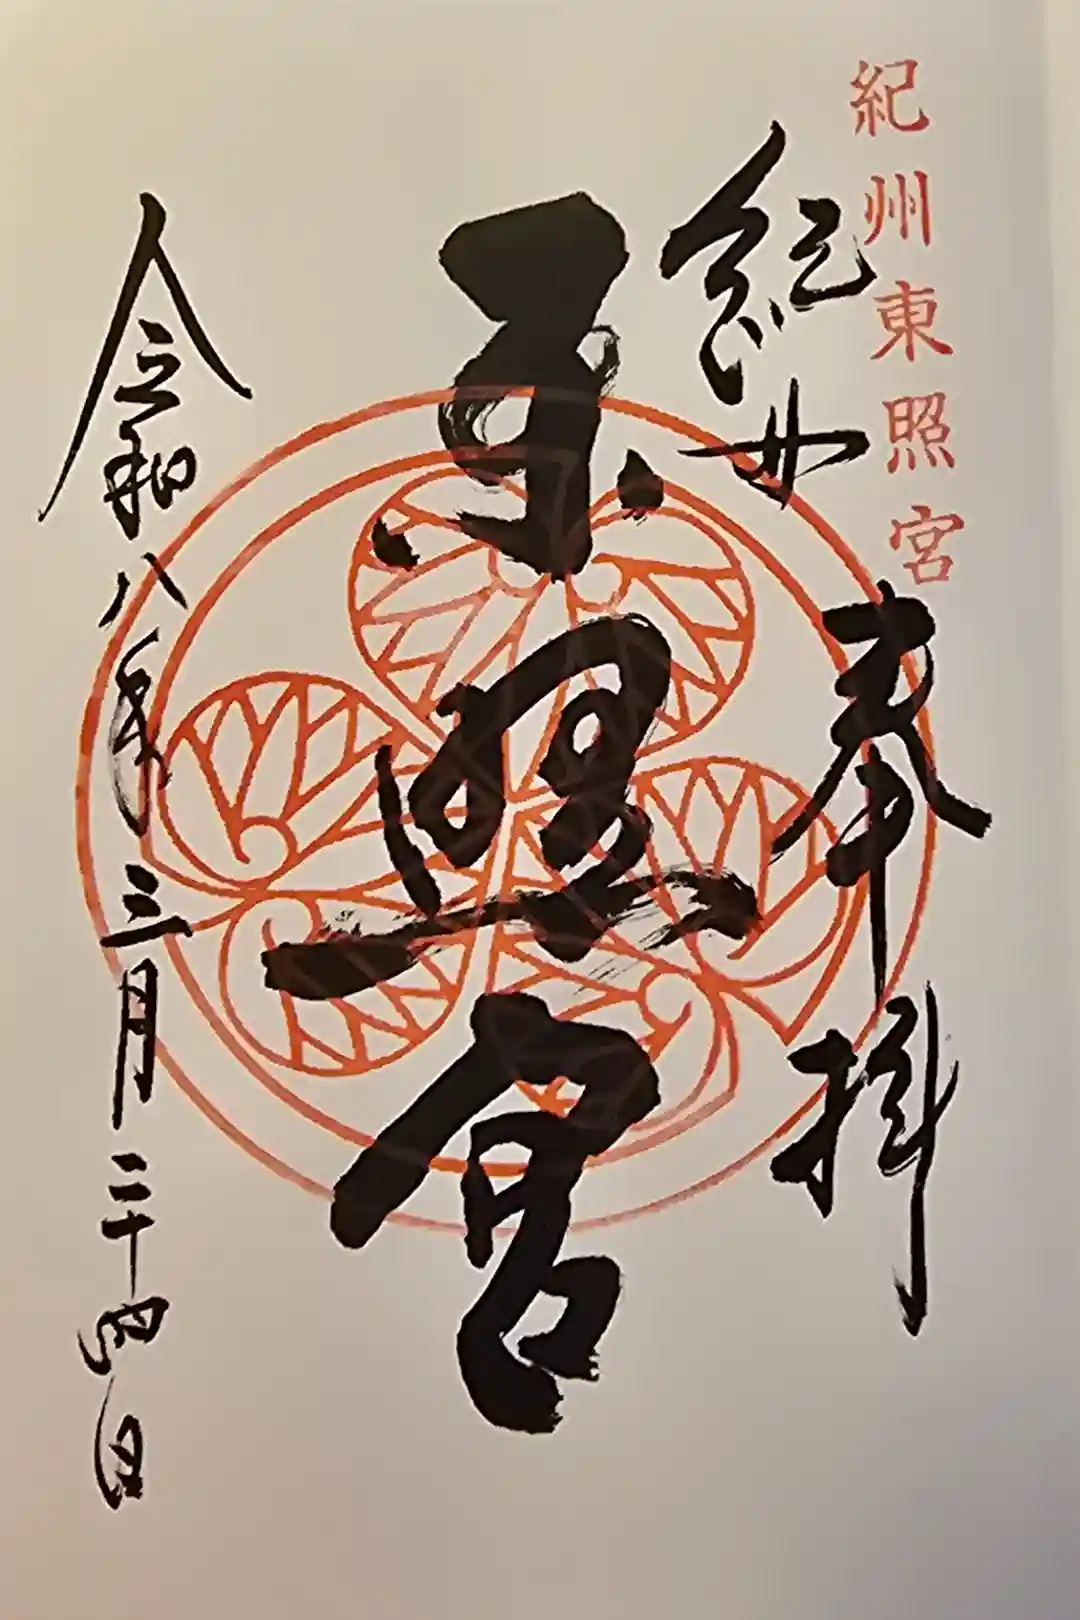 紀州東照宮
紀州
奉拝
東照宮
令和八年三月二十四日